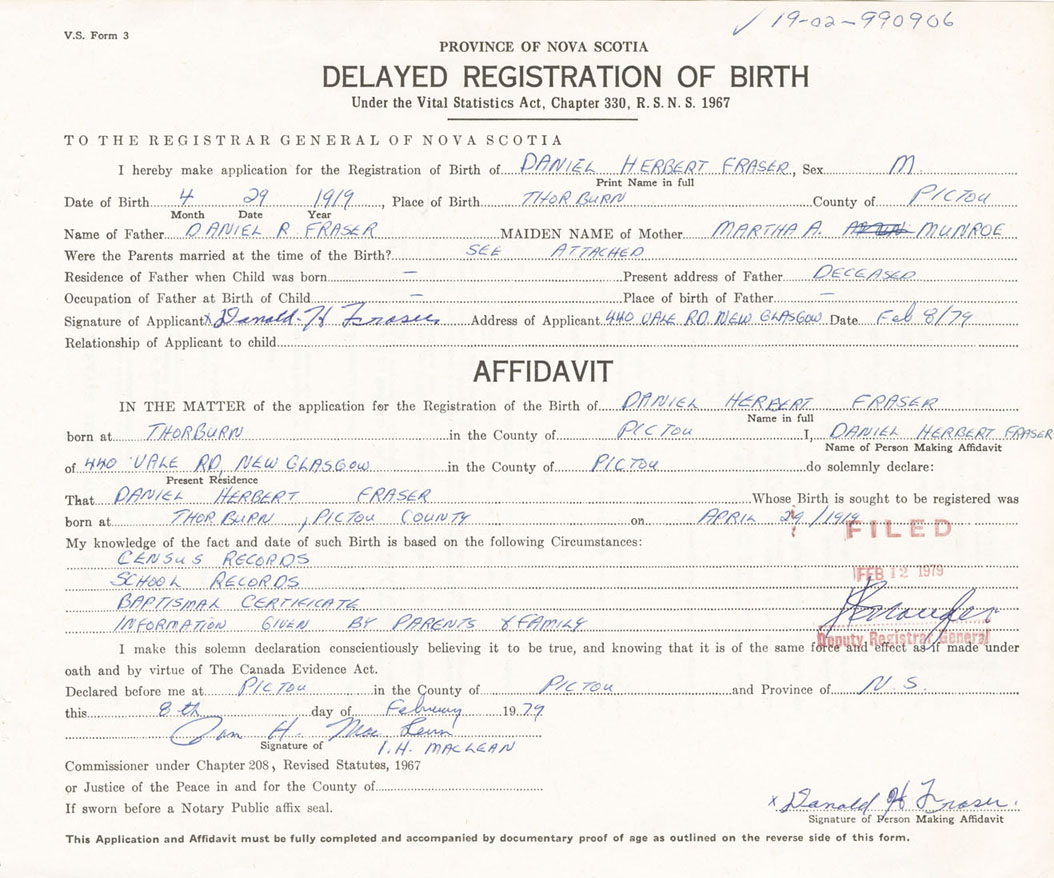 V.S. Form 3
✓ 19-02-990906
PROVINCE OF NOVA SCOTIA
DELAYED REGISTRATION OF BIRTH
Under the Vital Statistics Act, Chapter 330, R.S.N.S. 1967
TO THE REGISTRAR GENERAL OF NOVA SCOTIA
I hereby make application for the Registration of Birth of DANIEL HERBERT FRASER, Sex M.
Print Name in full
Date of Birth 4 29 1919, Place of Birth THORBURN County of PICTOU
Month Date Year
Name of Father DANIEL R FRASER MAIDEN NAME of Mother MARTHA A. MUNROE
Were the Parents married at the time of the Birth? SEE ATTACHED
Residence of Father when Child was born — Present address of Father DECEASED
Occupation of Father at Birth of Child — Place of birth of Father —
Signature of Applicant x Donald H Fraser Address of Applicant 440 VALE RD. NEW GLASGOW Date Feb 8/79
Relationship of Applicant to child
AFFIDAVIT
IN THE MATTER of the application for the Registration of the Birth of DANIEL HERBERT FRASER
Name in full
born at THORBURN in the County of PICTOU I, DANIEL HERBERT FRASER
Name of Person Making Affidavit
of 440 VALE RD, NEW GLASGOW in the County of PICTOU do solemnly declare:
Present Residence
That DANIEL HERBERT FRASER Whose Birth is sought to be registered was
born at THORBURN, PICTOU COUNTY on APRIL 29/1919
FILED
My knowledge of the fact and date of such Birth is based on the following Circumstances:
CENSUS RECORDS
SCHOOL RECORDS
FEB 12 1979
BAPTISMAL CERTIFICATE
INFORMATION GIVEN BY PARENTS & FAMILY
Deputy Registrar General
I make this solemn declaration conscientiously believing it to be true, and knowing that it is of the same force and effect as if made under
oath and by virtue of The Canada Evidence Act.
Declared before me at PICTOU in the County of PICTOU and Province of N.S.
this 8th day of February 1979
Ian H. MacLean
Signature of I.H. MACLEAN
Commissioner under Chapter 208, Revised Statutes, 1967
or Justice of the Peace in and for the County of
If sworn before a Notary Public affix seal.
x Donald H Fraser.
Signature of Person Making Affidavit
This Application and Affidavit must be fully completed and accompanied by documentary proof of age as outlined on the reverse side of this form.